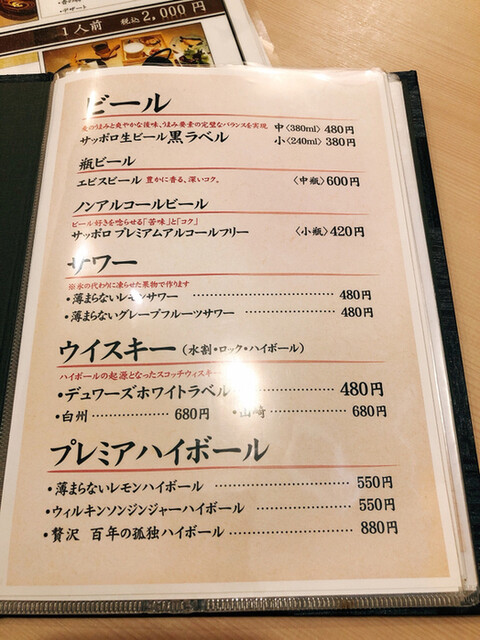 ・デザート
1人前 税込 2,000円
ビール
麦のうまみと爽やかな後味、うまみ要素の完璧なバランスを実現
サッポロ生ビール黒ラベル 中〈380ml〉480円
小〈240ml〉380円
瓶ビール
エビスビール 豊かに香る、深いコク。 〈中瓶〉600円
ノンアルコールビール
ビール好きを唸らせる「苦味」と「コク」
サッポロ プレミアムアルコールフリー 〈小瓶〉420円
サワー
氷の代わりに凍らせた果物で作ります
・薄まらないレモンサワー ………………… 480円
・薄まらないグレープフルーツサワー ………… 480円
ウイスキー（水割・ロック・ハイボール）
ハイボールの起源となったスコッチウィスキー
・デュワーズホワイトラベル ………… 480円
・白州 ………… 680円 ・山崎 ………… 680円
プレミアハイボール
・薄まらないレモンハイボール ………………… 550円
・ウィルキンソンジンジャーハイボール ………… 550円
・贅沢 百年の孤独ハイボール ………………… 880円